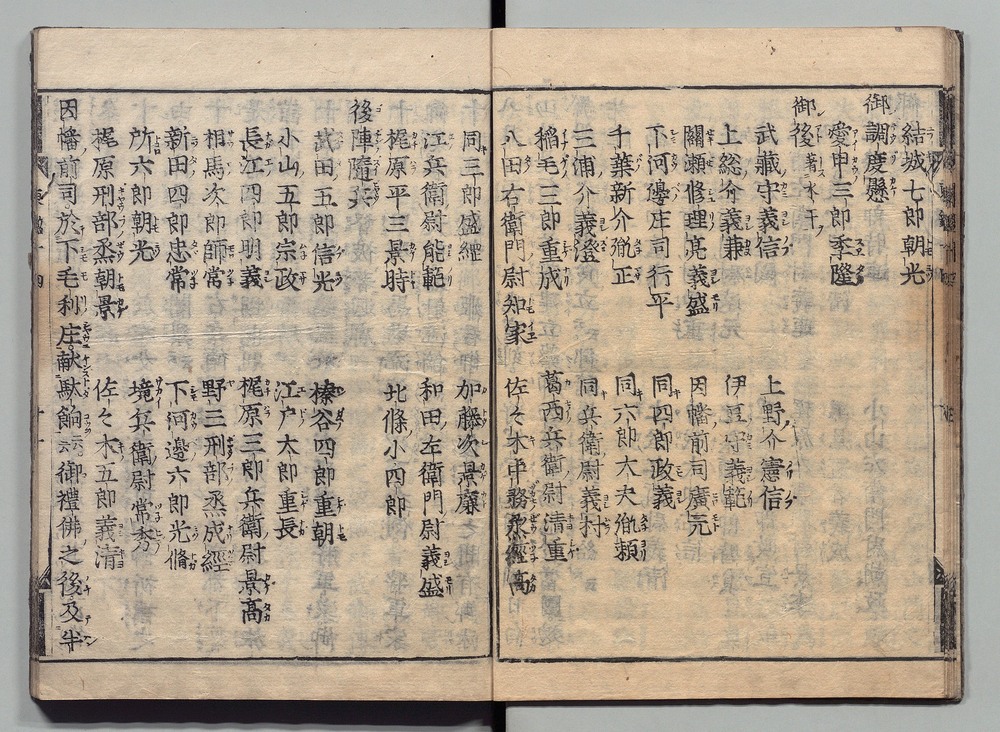 結城七郎朝光
御調度懸
愛甲三郎季隆
御後著水干
武藏守義信　上野介憲信
上総介義兼　伊豆守義範
關瀬修理亮義盛　因幡前司廣元
下河邊庄司行平　同四郎政義
千葉新介胤正　同六郎大夫胤頼
三浦介義澄　同兵衛尉義村
稲毛三郎重成　葛西兵衛尉清重
八田右衛門尉知家　佐々木中務丞經高
同三郎盛經　加藤次景廉
江兵衛尉能範　和田左衛門尉義盛
梶原平三景時　北條小四郎
後陣隨兵
武田五郎信光　榛谷四郎重朝
小山五郎宗政　江戸太郎重長
長江四郎明義　梶原三郎兵衛尉景高
相馬次郎師常　野三刑部丞成經
新田四郎忠常　下河邊六郎光脩
所六郎朝光　境兵衛尉常秀
梶原刑部丞朝景　佐々木五郎義清
因幡前司於下毛利庄献駄餉云云御禮佛之後及半